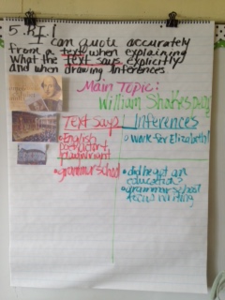 5.RI.1
I can quote accurately
from a text when explaining
what the text says explicitly
and when drawing inferences.
Main Topic:
William
Text Says
Inferences
• English
poet,
• work for Elizabeth
• grammar school
• did he get an
education?
• grammar school
writing